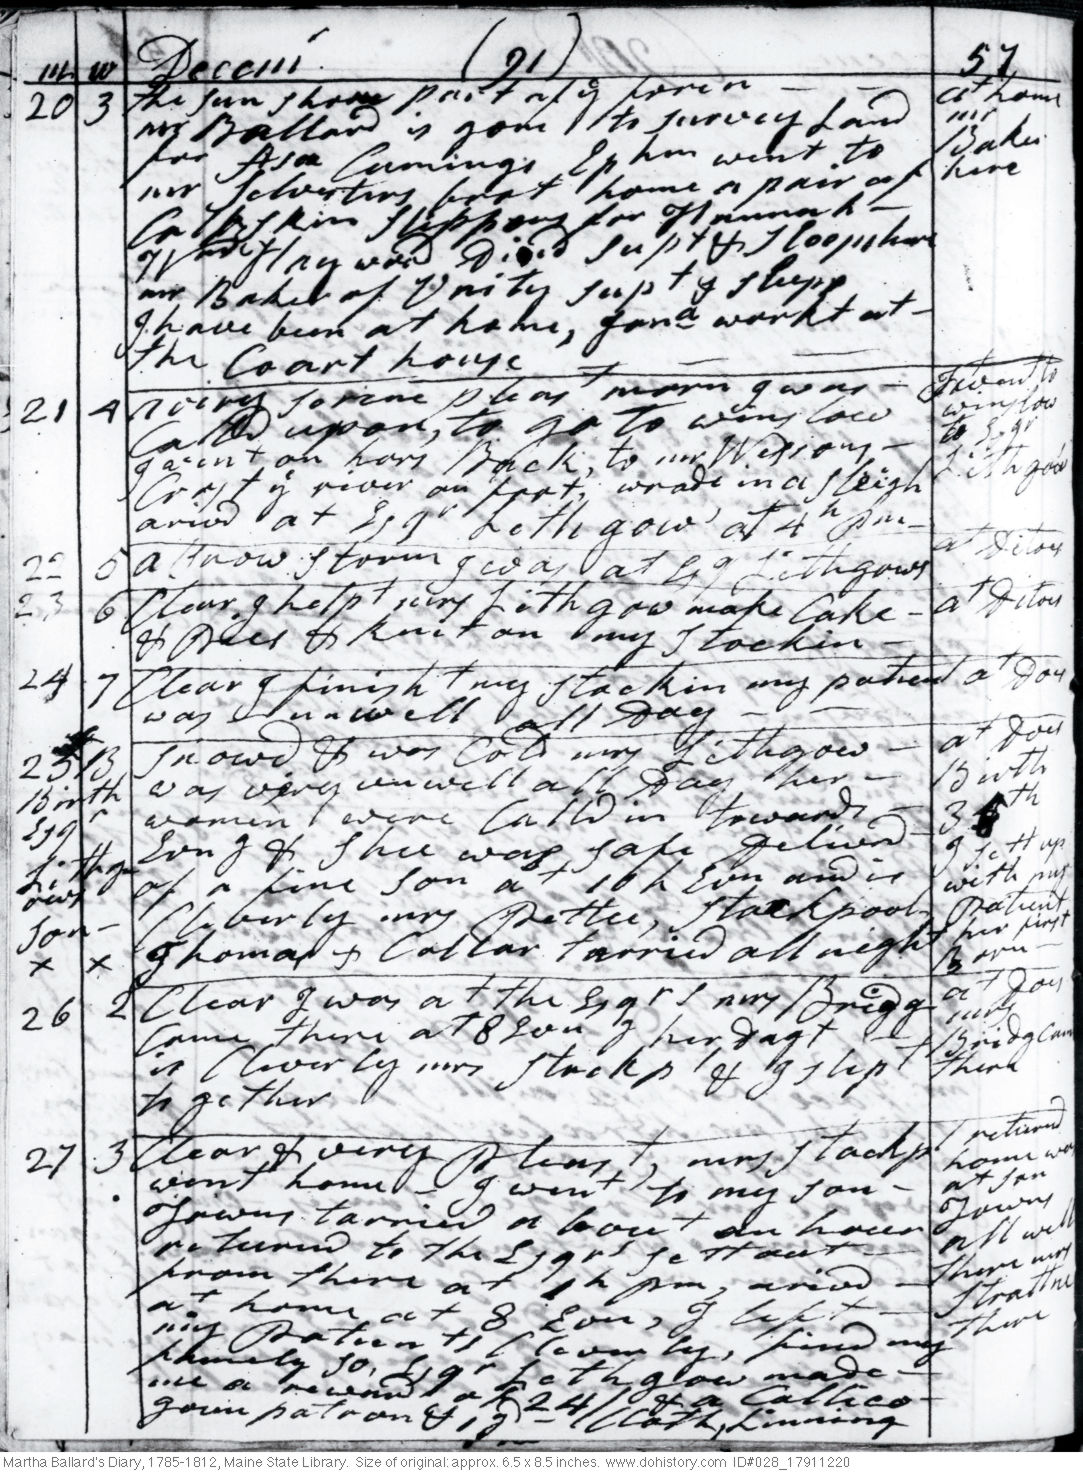 m w Decem (91) 57
20 3 the sun shone part of ye foren — — at home
mr Ballard is gone to survey Land mr
for Asa Cumings Ephm went to Baker
mr Selvesters brot home a pair of here
Calf skin slippers for Hannah —
Dind supt & sleeps here
mr Baker of Unity supt & sleeps
I have been at home, Jona workt at —
the Coart house — —
21 4 a very serene pleast morn I was — I went to
Calld upon, to go to winslow winslow
I went on hors Back, to mr Wesons, — to Esqr
Crost ye river on foot; wrode in a sleigh Lithgow
arivd at Esqr Lethgows at 4 h pm —
22 5 a snow storm I was at Esqr Lithgows at Ditos
23 6 Clear I helpt mrs Lithgow make Cake — at Ditos
& Pies & knit on my stockin —
24 7 Clear I finisht my stockin my patient at Dos
was unwell all Day — —
25 B Snowd & was Cold mrs Lithgow — at Dos
Birth was very unwell all Day her — Birth
Esqr women were Calld in towards — 3 th
Lithg- Evng & Shee was safe Delivrd I sett up
ows of a fine son at 10 h Evn and is with my
son — Cleverly mrs Pettee, Stackpool patient
x x Thomas & Collar tarried all night her first
Born —
26 2 Clear I was at the Esqrs mrs Bridg at Dos
Came there at 8 Evn her dagt — mrs
is Cleverly mrs Stackpl & I slept Bridg Cam
together there
27 3 Clear & very pleast, mrs Stackp I returnd
went home — I went to my son — home was
Towns tarried about an hour at son
returnd to the Esqrs sett out — Towns
from there at 1 h pm, arivd — all well
at home at 8 Evn, I left — there mrs
my Patients Cleverly, find my
famely so, Esqr Lethgow made — there
me a reward of 24/ & a Callico —
gown patron & Cloath, Linning
Martha Ballard's Diary, 1785-1812, Maine State Library. Size of original: approx. 6.5 x 8.5 inches. www.dohistory.com ID#028_17911220